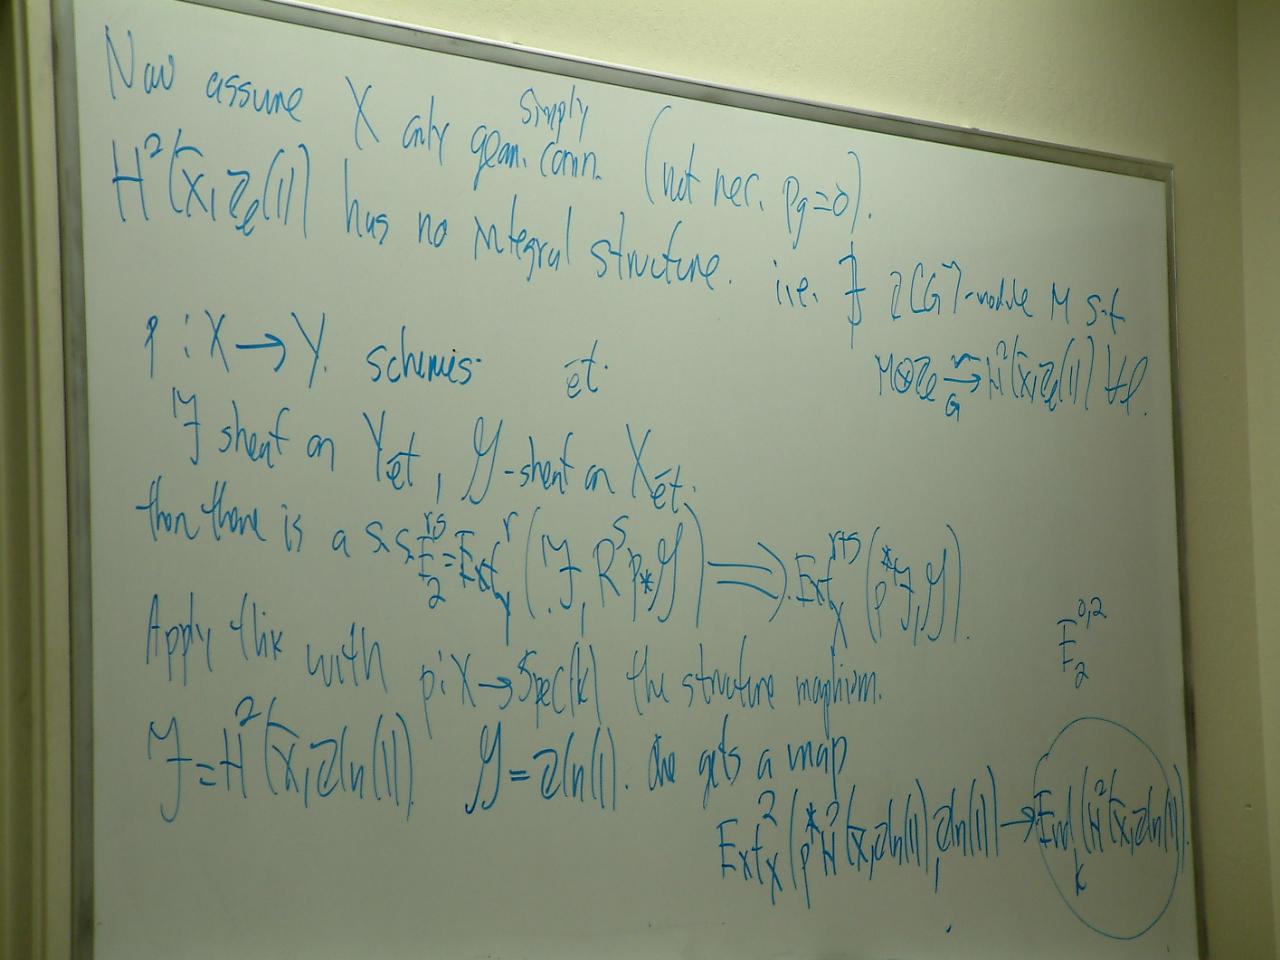 Now assume X only geom. simply conn. (not nec. pg=0).
H²(X̄, Zℓ(1)) has no integral structure. i.e. ∄ Z[G]-module M s.t
M⊗Zℓ ≃→_G H²(X̄, Zℓ(1)) ∀ℓ.
p : X → Y. schemes. ét.
ℱ sheaf on Y_ét, 𝒢-sheaf on X_ét.
then there is a s.s. E_2^{r,s} = Ext_Y^r(ℱ, R^s p_* 𝒢) ⟹ Ext_X^{r+s}(p^*ℱ, 𝒢).
Apply this with p: X → Spec(k) the structure morphism.
E_2^{0,2}
ℱ = H²(X̄, Z/n(1)). 𝒢 = Z/n(1). One gets a map
Ext_X^2(p^*H²(X̄, Z/n(1)), Z/n(1)) → End_k(H²(X̄, Z/n(1))).